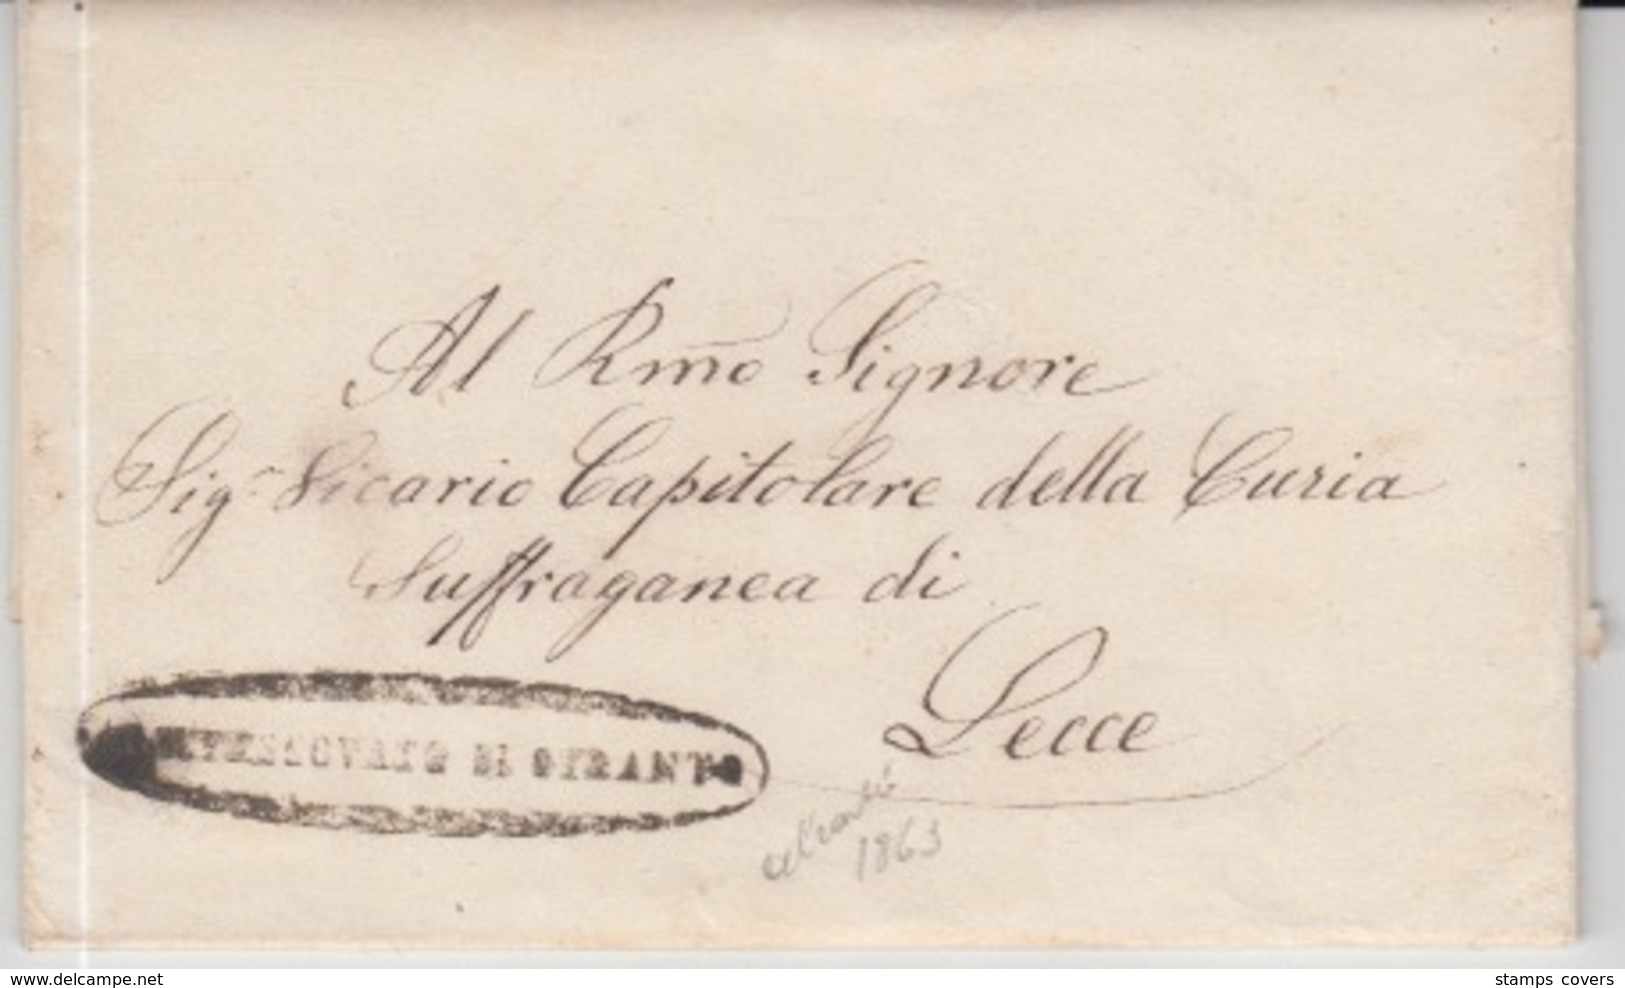 Al Rmo Signore
Sig.r Vicario Capitolare della Curia
Suffraganea di
Lecce
DI OTRANTO
1863
www.delcampe.net
stamps covers